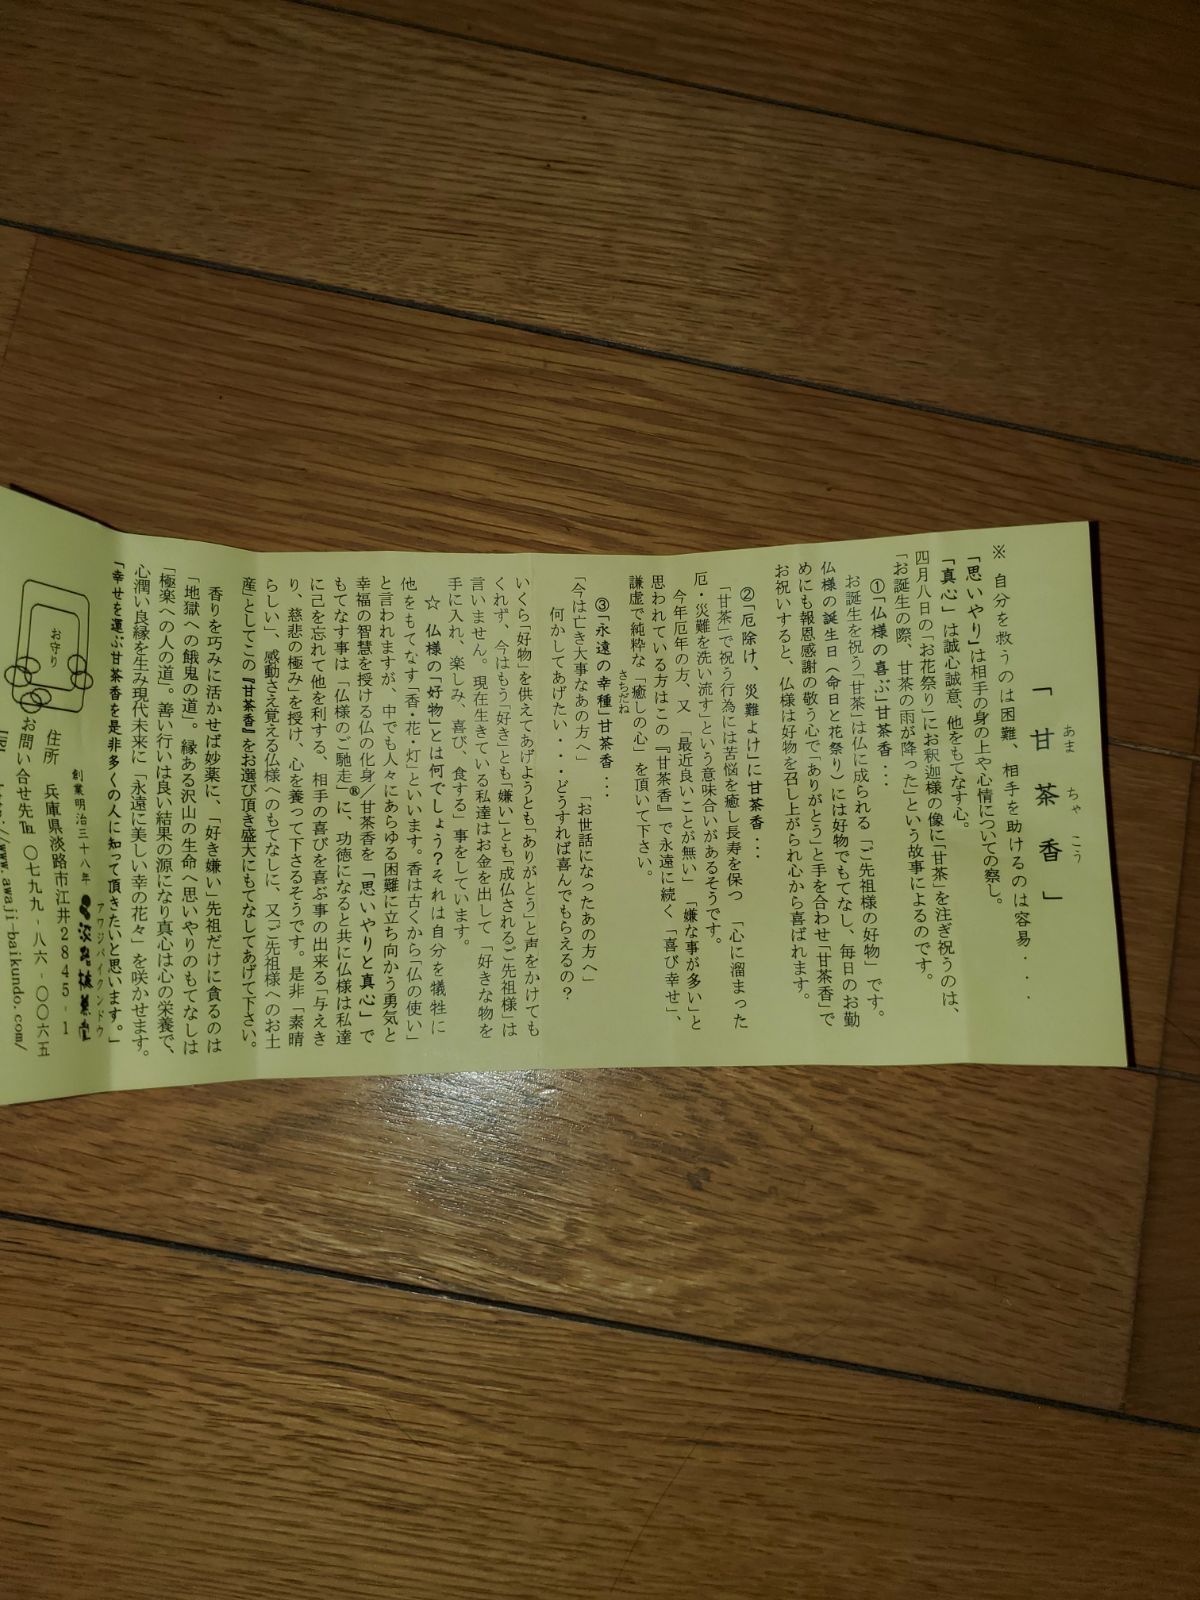 「甘茶香」
あま ちゃ こう
※ 自分を救うのは困難、相手を助けるのは容易・・・
「思いやり」は相手の身の上や心情についての察し。
「真心」は誠心誠意、他をもてなす心。
四月八日の「お花祭り」にお釈迦様の像に「甘茶」を注ぎ祝うのは、
「お誕生の際、甘茶の雨が降った」という故事によるのです。
①「仏様の喜ぶ」甘茶香・・・
お誕生を祝う「甘茶」は仏に成られる「ご先祖様の好物」です。
仏様の誕生日（命日と花祭り）には好物でもてなし、毎日のお勤
めにも報恩感謝の敬う心で「ありがとう」と手を合わせ「甘茶香」で
お祝いすると、仏様は好物を召し上がられ心から喜ばれます。
②「厄除け、災難よけ」に甘茶香・・・
「甘茶」で祝う行為には苦悩を癒し長寿を保つ 「心に溜まった
厄・災難を洗い流す」という意味合いがあるそうです。
今年厄年の方、又「最近良いことが無い」「嫌な事が多い」と
思われている方はこの『甘茶香』で永遠に続く「喜び幸せ」、
謙虚で純粋な「癒しの心」を頂いて下さい。
さちだね
③「永遠の幸種」甘茶香・・・
「今は亡き大事なあの方へ」 「お世話になったあの方へ」
何かしてあげたい・・・どうすれば喜んでもらえるの？
いくら「好物」を供えてあげようとも「ありがとう」と声をかけても
くれず、今はもう「好き」とも「嫌い」とも「成仏されるご先祖様」は
言いません。現在生きている私達はお金を出して「好きな物を
手に入れ、楽しみ、喜び、食する」事をしています。
☆ 仏様の「好物」とは何でしょう？それは自分を犠牲に
他をもてなす「香・花・灯」といいます。香は古くから「仏の使い」
と言われますが、中でも人々にあらゆる困難に立ち向かう勇気と
幸福の智慧を授ける仏の化身／甘茶香を「思いやりと真心」で
もてなす事は「仏様のご馳走」®に、功徳になると共に仏様は私達
に己を忘れて他を利する、相手の喜びを喜ぶ事の出来る「与えき
り、慈悲の極み」を授け、心を養って下さるそうです。是非「素晴
らしい」、感動さえ覚える仏様へのもてなしに、又「ご先祖様へのお土
産」としてこの『甘茶香』をお選び頂き盛大にもてなしてあげて下さい。
香りを巧みに活かせば妙薬に、「好き嫌い」先祖だけに貪るのは
「地獄への餓鬼の道」。縁ある沢山の生命へ思いやりのもてなしは
「極楽への人の道」。善い行いは良い結果の源になり真心は心の栄養で、
心潤い良縁を生み現代未来に「永遠に美しい幸の花々」を咲かせます。
「幸せを運ぶ甘茶香を是非多くの人に知って頂きたいと思います。」
アワジバイクンドウ
創業明治三十八年 淡路梅薫堂
住所 兵庫県淡路市江井2845-1
お守り
お問い合せ先℡ 〇七九九-八六-〇〇六五
URL http://www.awaji-baikundo.com/